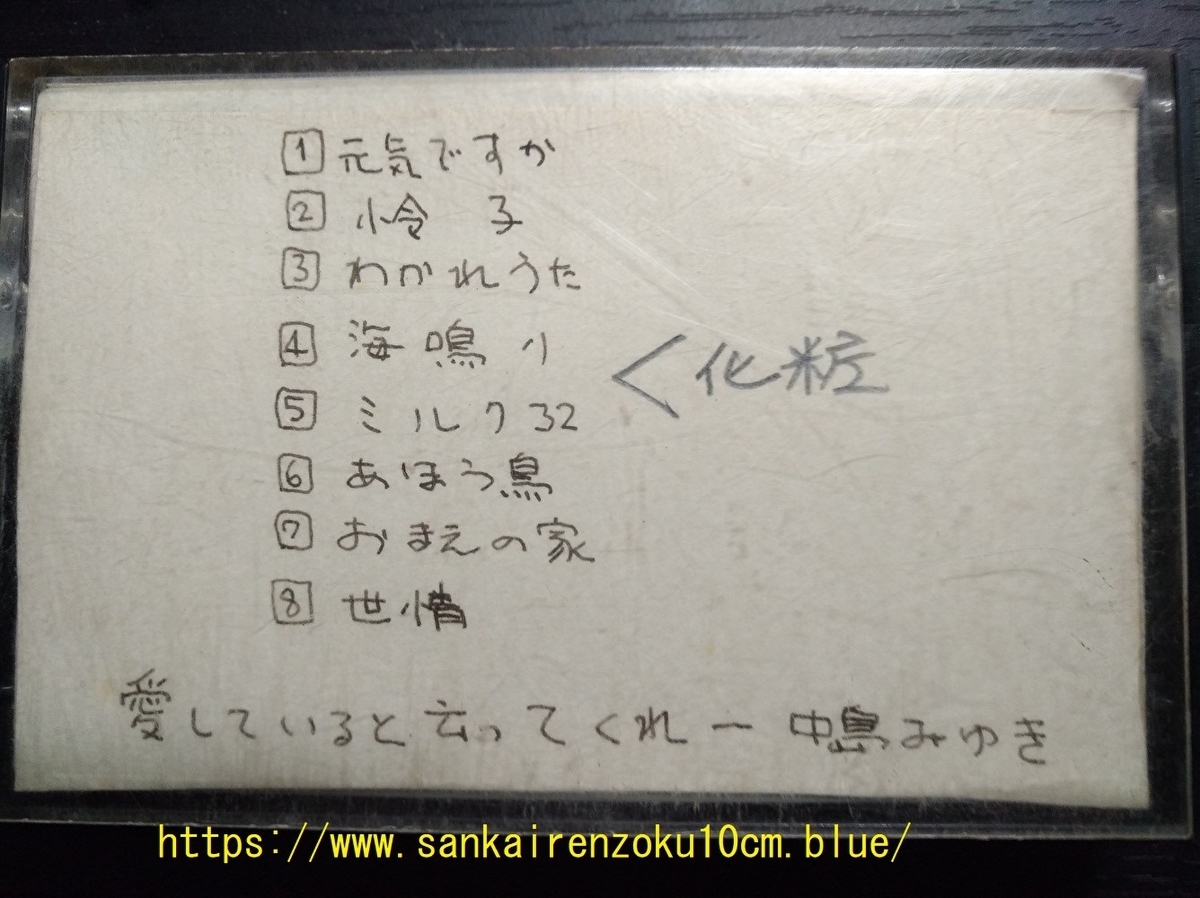 1 元気ですか
2 怜 子
3 わかれうた
4 海鳴り
< 化粧
5 ミルク32
6 あほう鳥
7 おまえの家
8 世情
愛していると云ってくれ ー 中島みゆき
https://www.sankairenzoku10cm.blue/